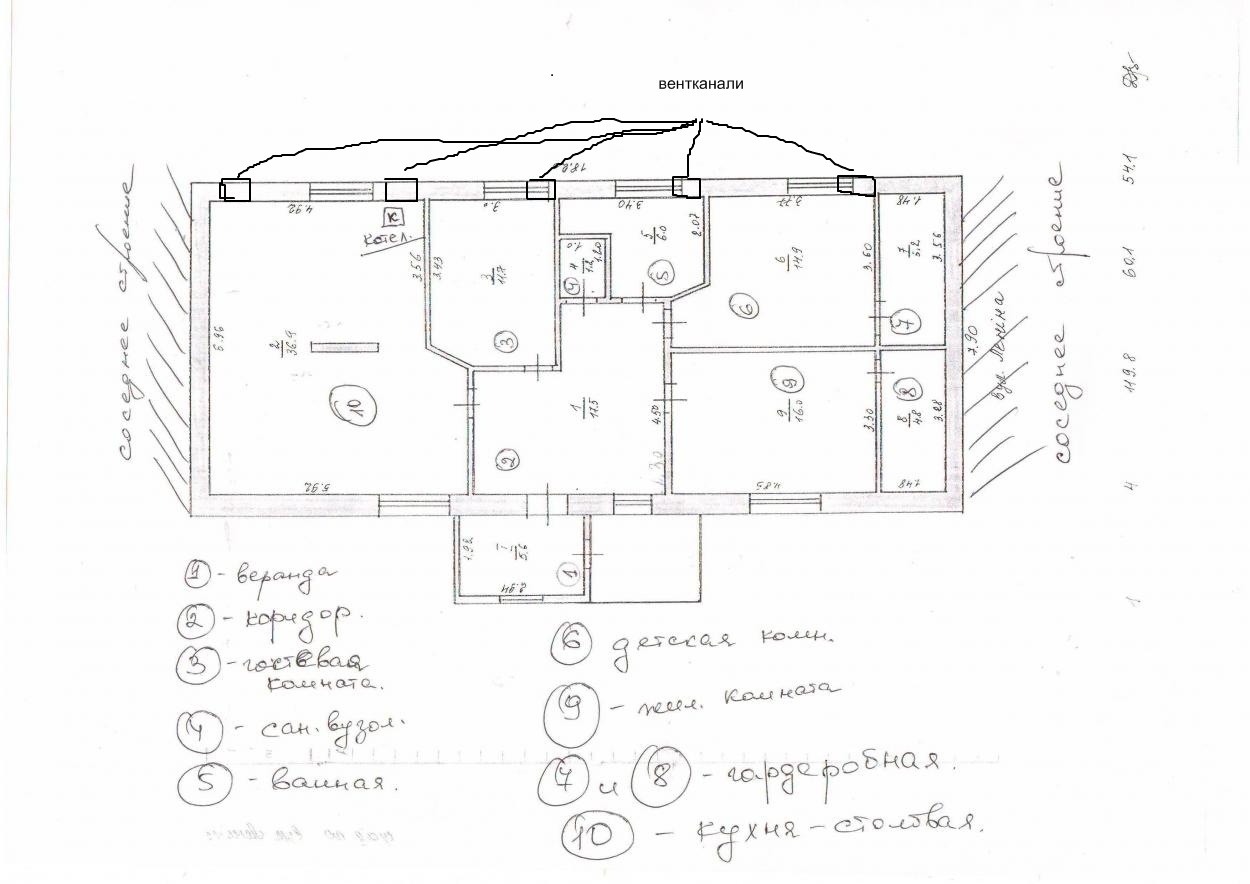 вентканали
18.2
4.92
3.0
3.40
3.77
1.48
К
котел.
3.56
3.43
3
11.7
3
1.0
4
1.2
1.20
4
5
6.0
5
2.07
6
14.9
6
3.60
7
5.2
7
3.56
соседнее строение
6.96
2
36.9
10
1
17.5
2
4.50
9
9
16.0
3.30
8
8
4.8
3.28
7.90
вул. Леніна
соседнее строение
5.92
4.85
1.48
1.92
I
5.6
1
2.94
1
4
119.8
60.1
54.1
1 - веранда
2 - коридор.
3 - гостевая
комната.
4 - сан. вузол.
5 - ванная.
6 детская комн.
9 - жил. комната
7 и 8 - гардеробная.
10 - кухня-столовая.